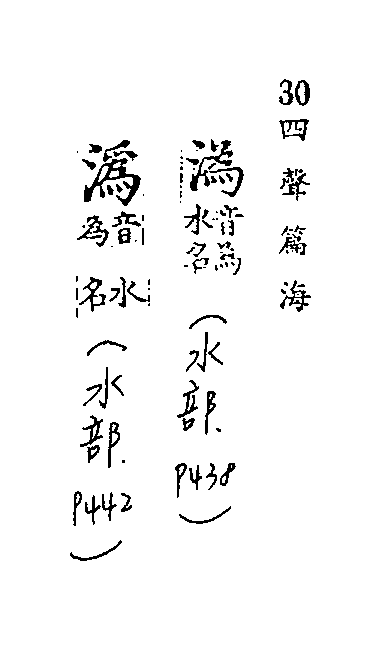 30四聲篇海
溈音為水名(水部.P438)
潙音為水名(水部.P442)